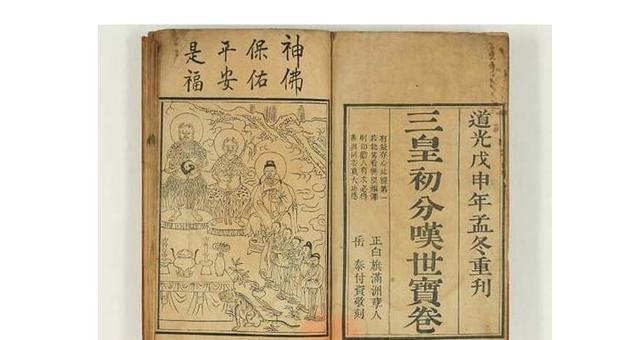 道光戊申年孟冬重刊
三皇初分嘆世寶卷
有益存心此經第一
正白旗滿洲孽人
岳泰付資敬刻
神佛
保佑
平安
是福